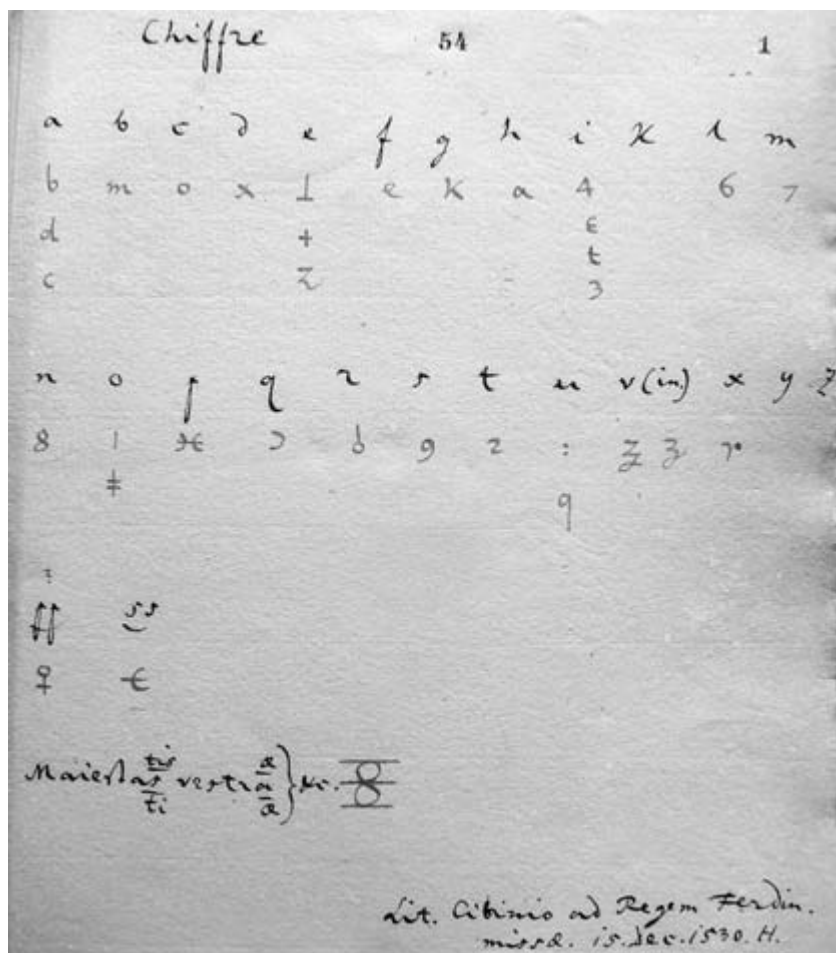 Chiffre 54 1
a b c d e f g h i K l m
b m o x ⊥ e K a 4 6 7
d + ϵ
c Z t
3
n o p q r s t u v (in.) x y z
8 1 ɔ b 9 2 : ʒ ʒ r
‡ q
?
ff ss
♀ €
Maiestas tis ti vestra æ a æ } etc. 8
Lit. Cibinio ad Regem Ferdin.
missæ. 15. dec. 1530. H.